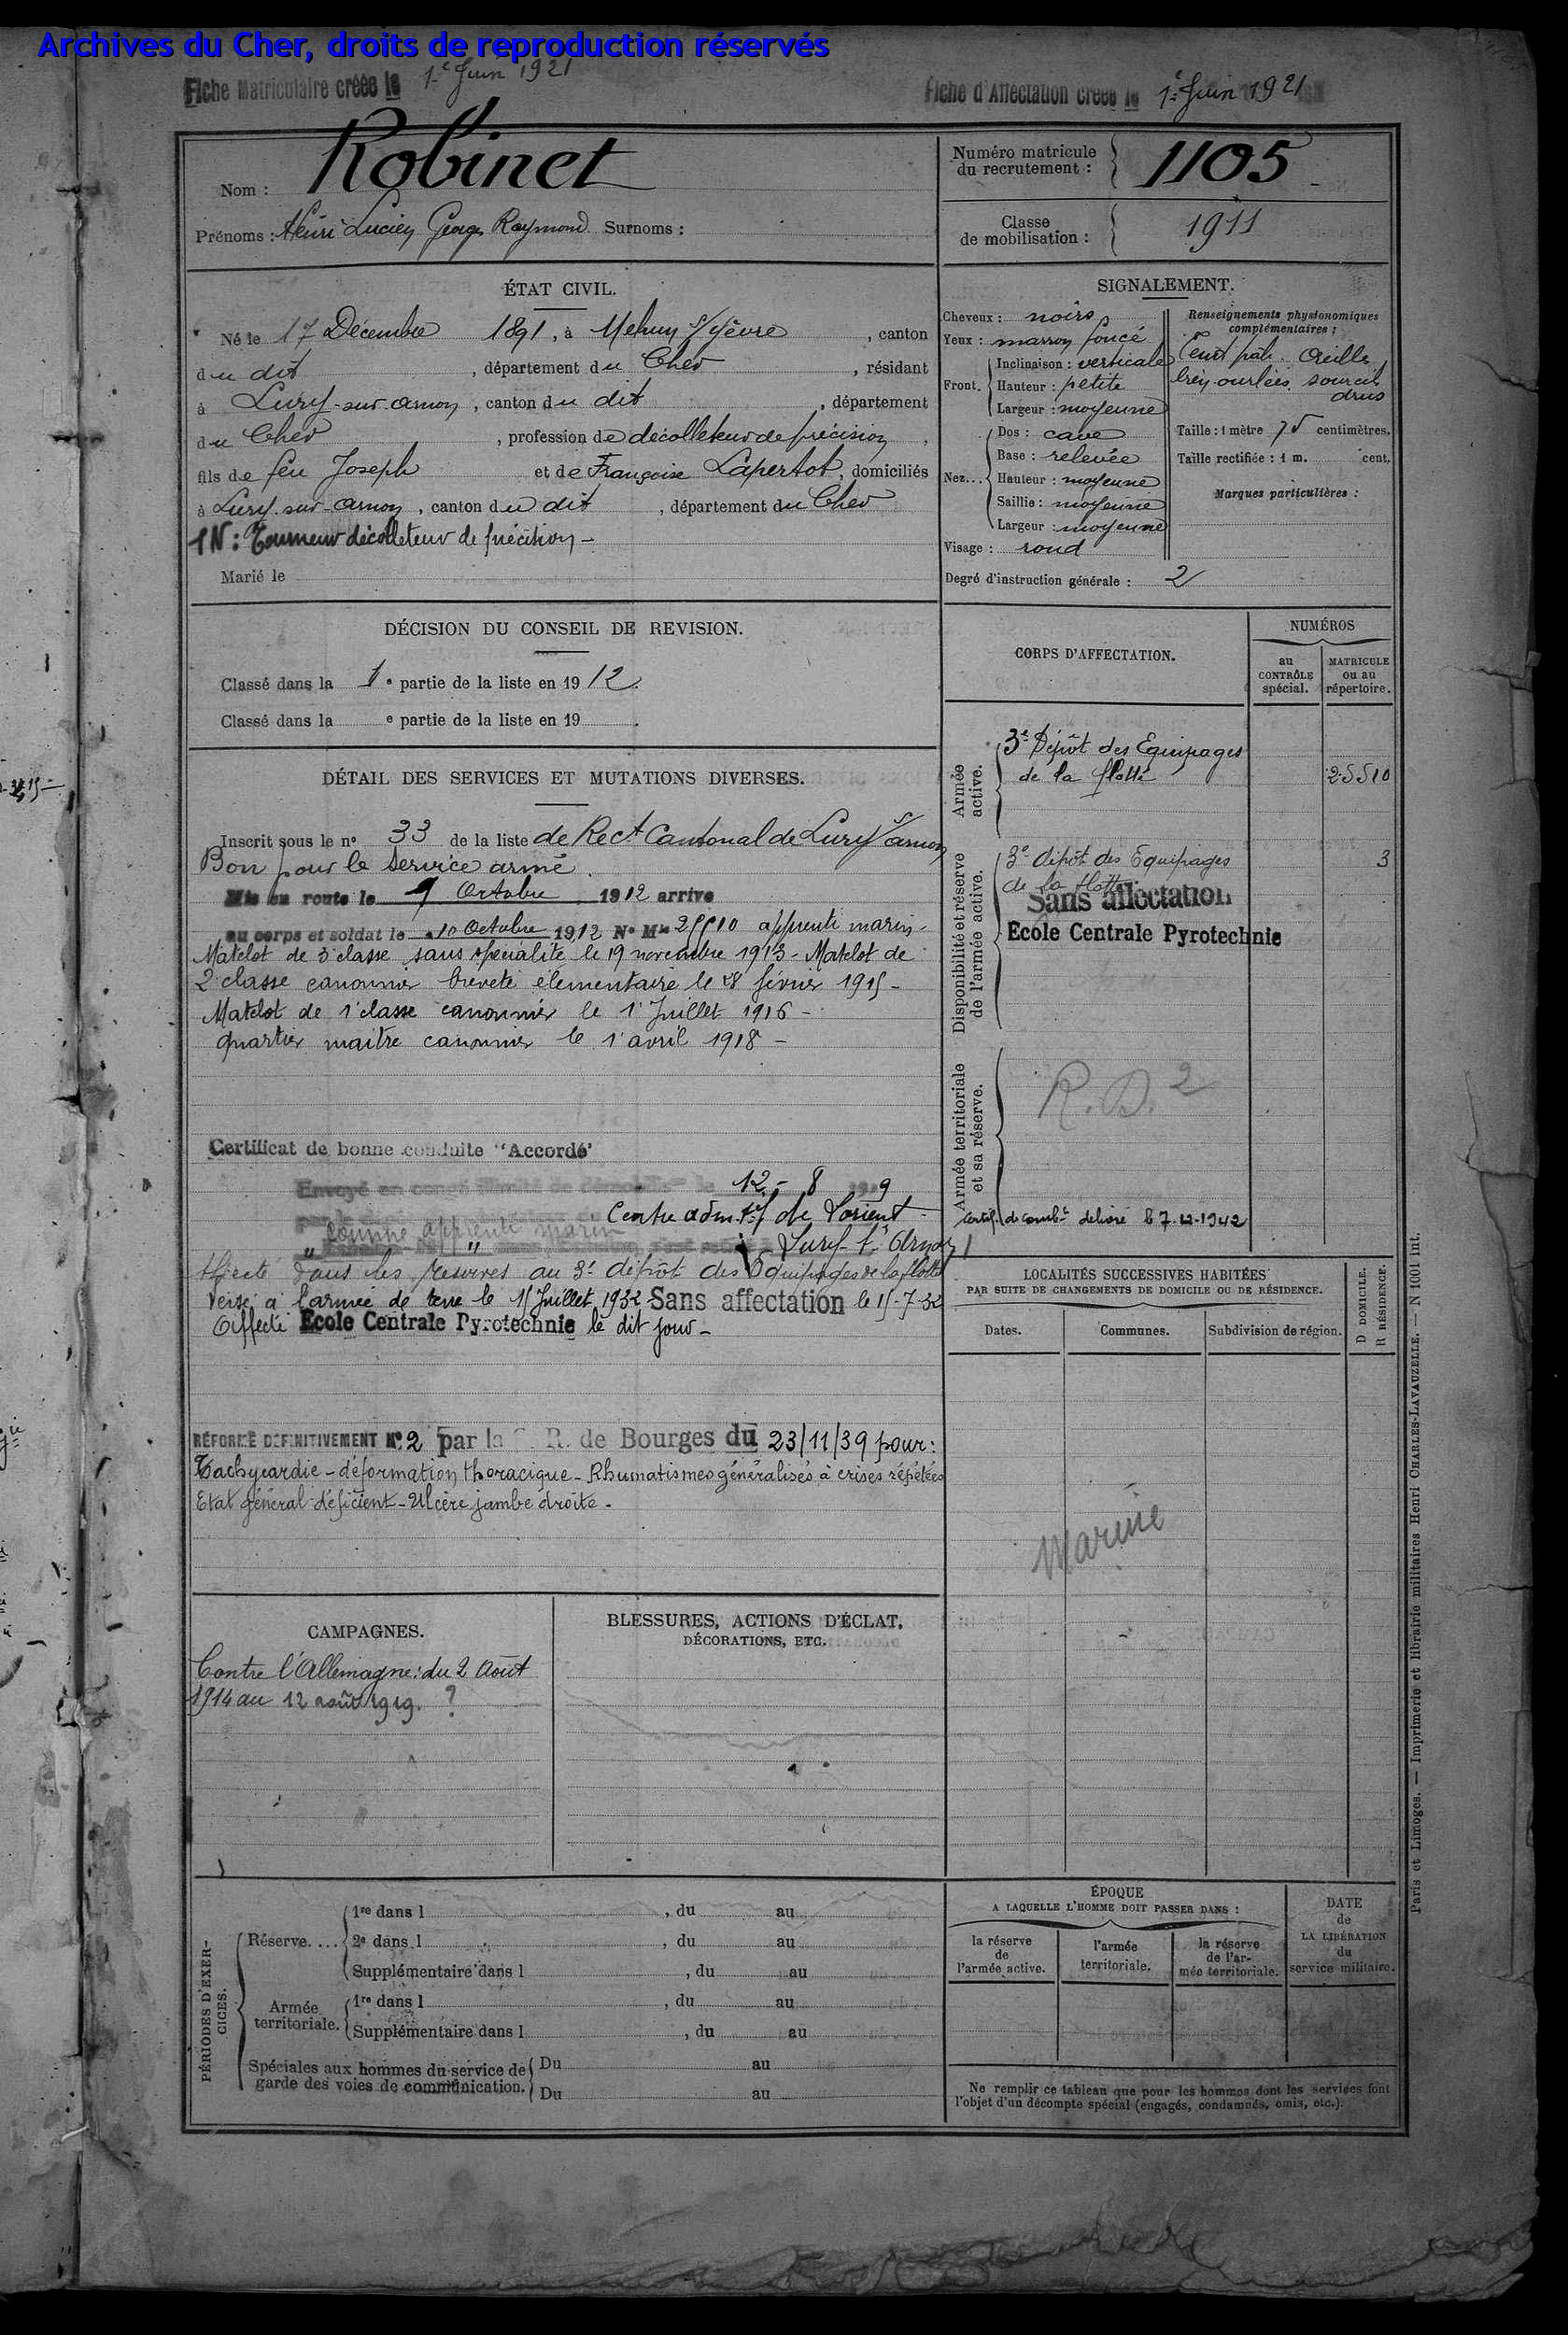 Archives du Cher, droits de reproduction réservés
Fiche Matriculaire créée le 1e Juin 1921
Fiche d'Affectation créée le 1e Juin 1921
Nom : Robinet
Prénoms : Henri Lucien Georges Raymond Surnoms :
Numéro matricule du recrutement : 1105
Classe de mobilisation : 1911
ÉTAT CIVIL.
Né le 17 Décembre 1891, à Mehun s/yèvre, canton
du dit, département du Cher, résidant
à Lury-sur-Arnon, canton du dit, département
du Cher, profession de décolleteur de précision,
fils de feu Joseph et de Françoise Lapertot, domiciliés
à Lury-sur-Arnon, canton du dit, département du Cher
1N : Tourneur décolleteur de précision -
Marié le
SIGNALEMENT.
Cheveux : noirs
Yeux : marron foncé
Front. Inclinaison : verticale
Hauteur : petite
Largeur : moyenne
Nez... Dos : cave
Base : relevée
Hauteur : moyenne
Saillie : moyenne
Largeur : moyenne
Visage : rond
Renseignements physionomiques complémentaires :
Teint pâle. Oreilles
très ourlées. sourcils
drus
Taille : 1 mètre 75 centimètres.
Taille rectifiée : 1 m. cent.
Marques particulières :
Degré d'instruction générale : 2
DÉCISION DU CONSEIL DE REVISION.
Classé dans la 1e partie de la liste en 1912.
Classé dans la e partie de la liste en 19 .
DÉTAIL DES SERVICES ET MUTATIONS DIVERSES.
Inscrit sous le n° 33 de la liste de Rect Cantonal de Lury s/arnon
Bon pour le service armé.
Mis en route le 9 Octobre 1912 arrivé
au corps et soldat le 10 Octobre 1912 N° Mle 25510 apprenti marin -
Matelot de 3e classe sans spécialité le 19 novembre 1913 - Matelot de
2e classe canonnier breveté élémentaire le 28 février 1915 -
Matelot de 1e classe canonnier le 1e Juillet 1916 -
quartier maitre canonnier le 1e avril 1918 -
Certificat de bonne conduite "Accordé"
Envoyé en congé illimité de démobilisation le 12 - 8 1919
par le Centre admtif de Lorient -
comme apprenti marin
Lury s/ Arnon
Affecté dans les réserves au 3e dépôt des Equipages de la flotte
Versé à l'armée de terre le 15 Juillet 1932 Sans affectation le 15-7-32
Affecté Ecole Centrale Pyrotechnie le dit jour -
RÉFORMÉ DÉFINITIVEMENT N° 2 par la C. R. de Bourges du 23/11/39 pour :
Tachycardie - déformation thoracique - Rhumatismes généralisés à crises répétées
Etat général déficient - Ulcère jambe droite -
CORPS D'AFFECTATION.
NUMÉROS
au CONTRÔLE spécial.
MATRICULE ou au répertoire.
Armée active.
3e Dépôt des Equipages
de la flotte 25510
Disponibilité et réserve de l'armée active.
3e dépôt des Equipages 3
de la flotte
Sans affectation
Ecole Centrale Pyrotechnie
Armée territoriale et sa réserve.
R.D. 2
Certif. de combt délivré le 7.12.1942
LOCALITÉS SUCCESSIVES HABITÉES
PAR SUITE DE CHANGEMENTS DE DOMICILE OU DE RÉSIDENCE.
Dates. Communes. Subdivision de région.
D DOMICILE. R RÉSIDENCE.
Marine
CAMPAGNES.
Contre l'Allemagne : du 2 Août
1914 au 12 août 1919. ?
BLESSURES, ACTIONS D'ÉCLAT,
DÉCORATIONS, ETC.
PÉRIODES D'EXERCICES.
Réserve.... 1re dans l , du au
2e dans l , du au
Supplémentaire dans l , du au
Armée territoriale. 1re dans l , du au
Supplémentaire dans l , du au
Spéciales aux hommes du service de garde des voies de communication. Du au
Du au
ÉPOQUE
A LAQUELLE L'HOMME DOIT PASSER DANS :
la réserve de l'armée active.
l'armée territoriale.
la réserve de l'armée territoriale.
DATE de LA LIBÉRATION du service militaire.
Ne remplir ce tableau que pour les hommes dont les services font
l'objet d'un décompte spécial (engagés, condamnés, omis, etc.).
Paris et Limoges. — Imprimerie et librairie militaires Henri CHARLES-LAVAUZELLE. — N 1001 int.